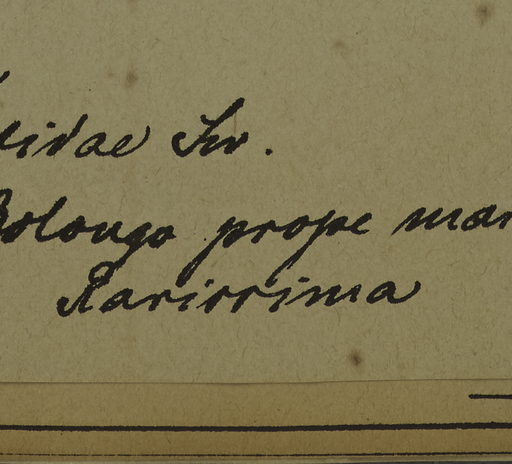 idae Sw.
Bolongo prope mar
Rarissima